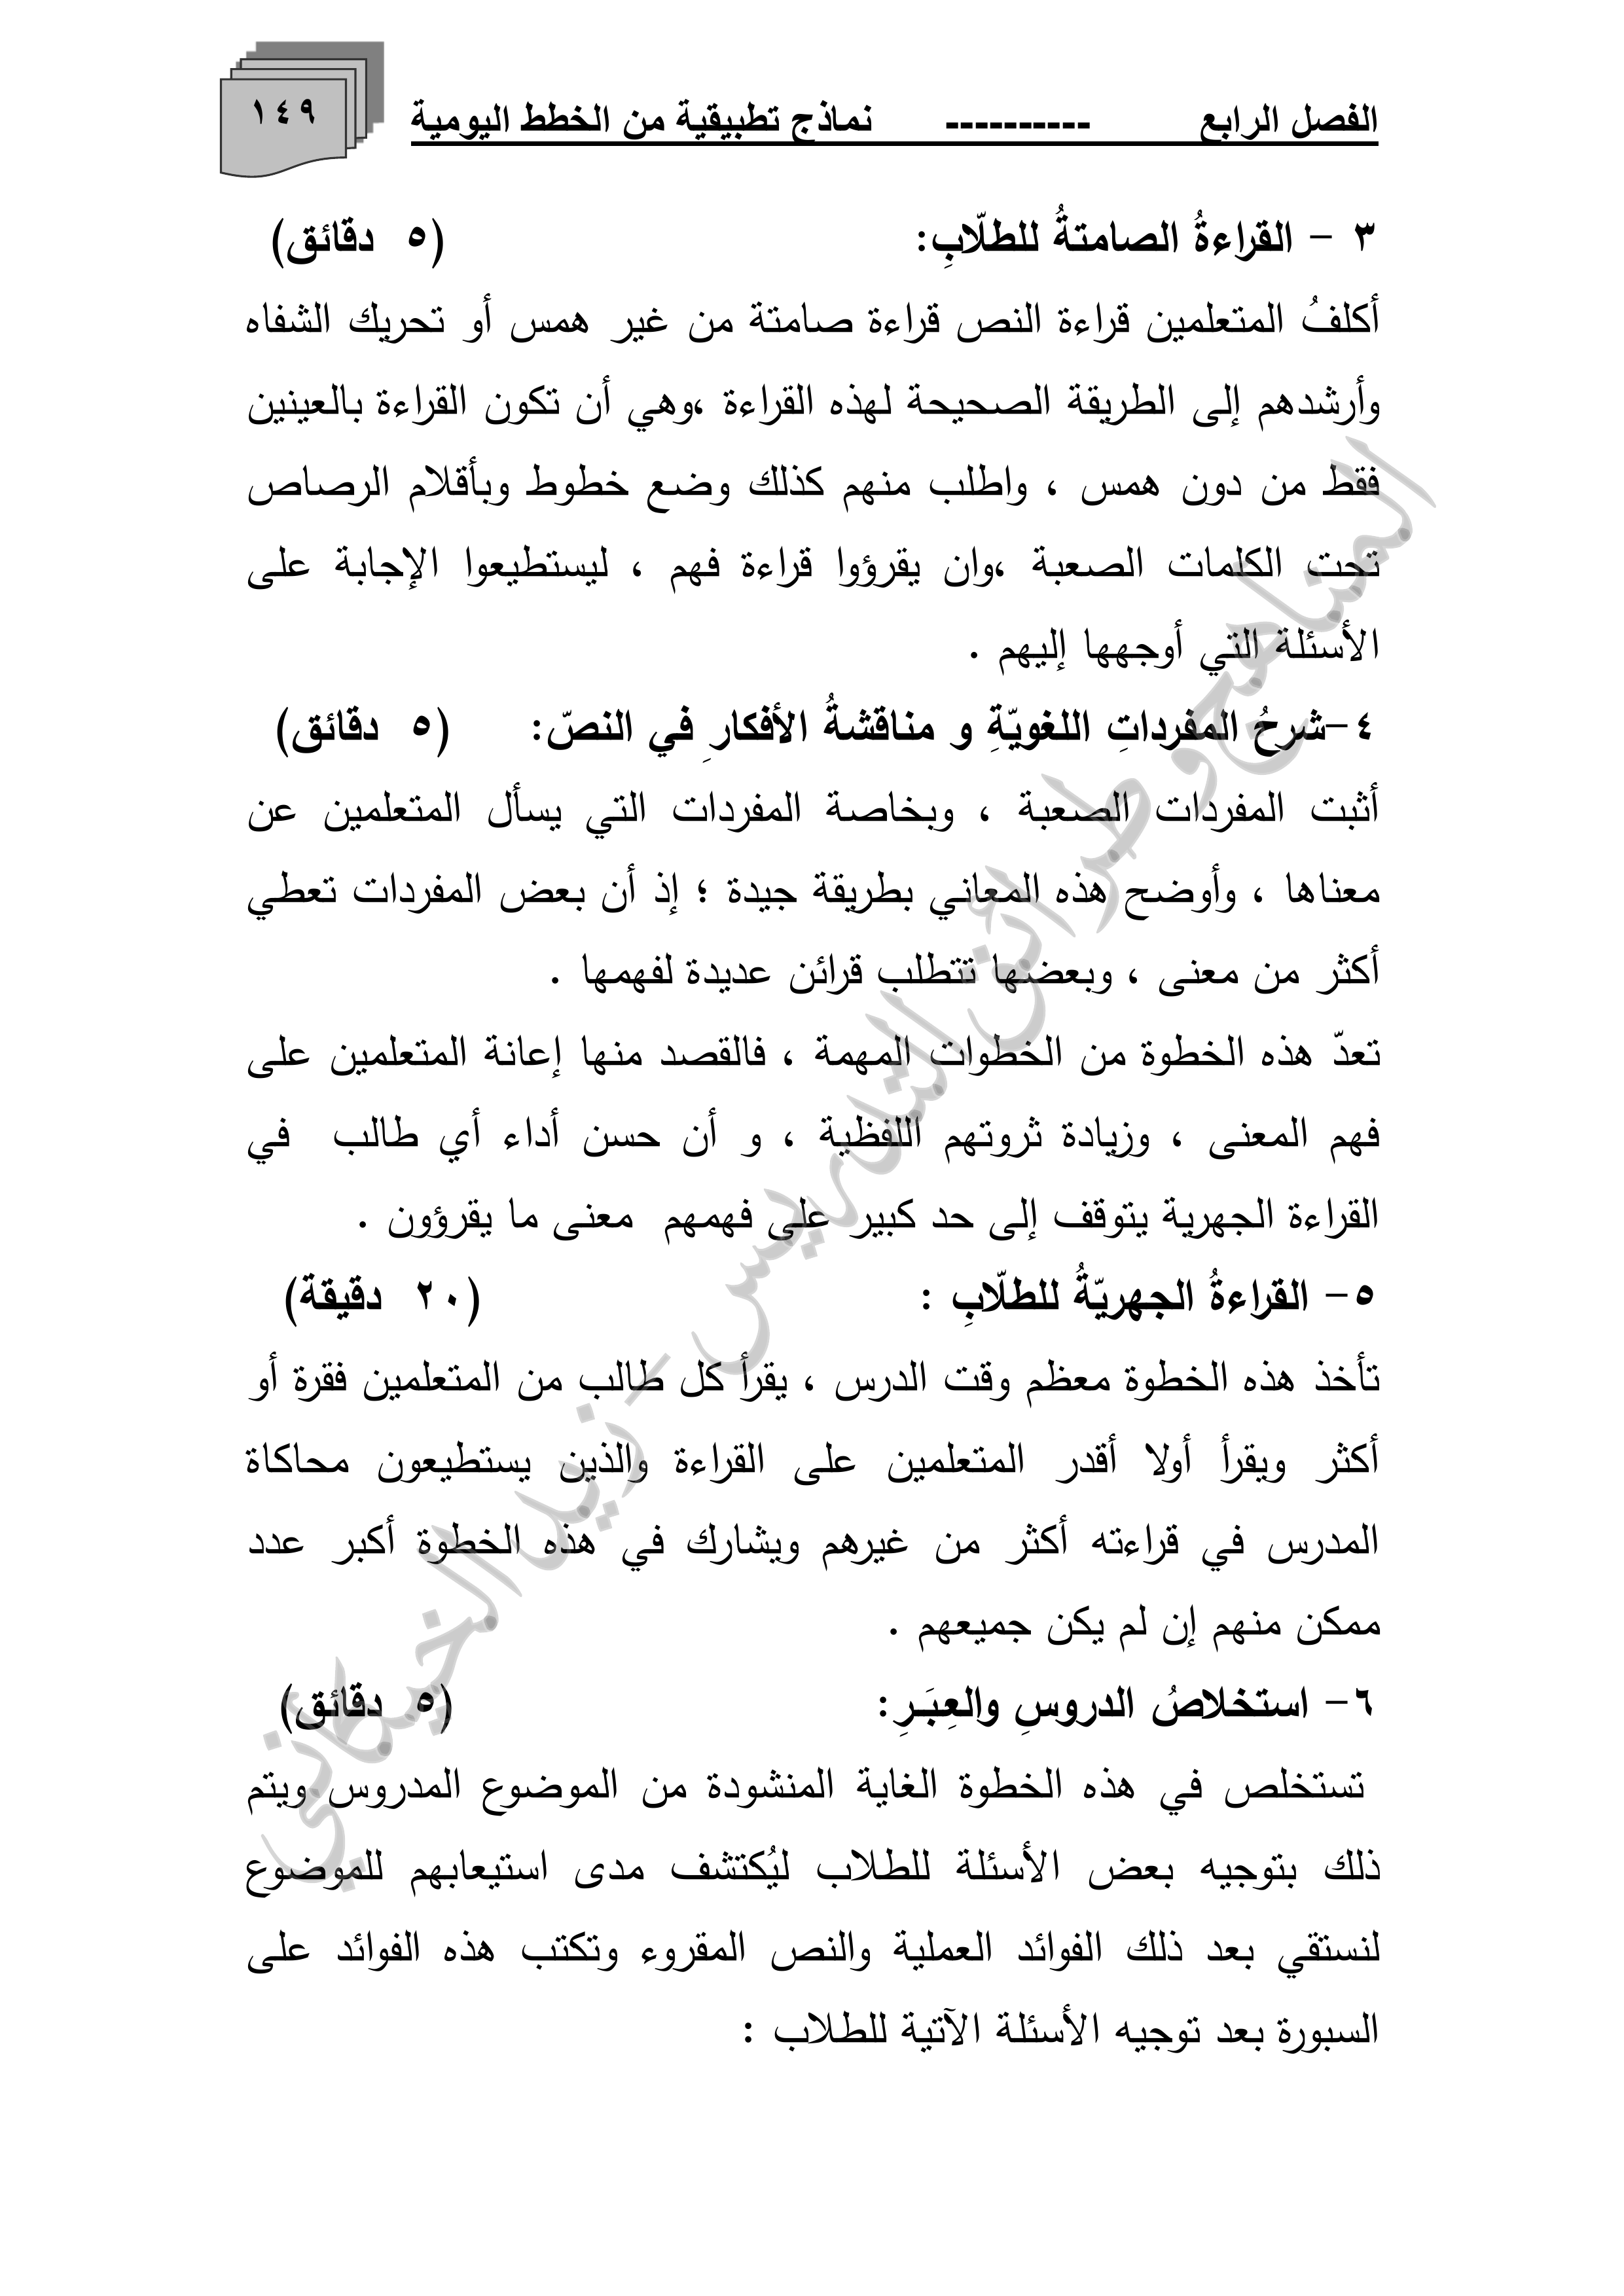 الفصل الرابع ---------- نماذج تطبيقية من الخطط اليومية
١٤٩
٣ – القراءةُ الصامتةُ للطلّابِ: (٥ دقائق)
أكلفُ المتعلمين قراءة النص قراءة صامتة من غير همس أو تحريك الشفاه
وأرشدهم إلى الطريقة الصحيحة لهذه القراءة ،وهي أن تكون القراءة بالعينين
فقط من دون همس ، واطلب منهم كذلك وضع خطوط وبأقلام الرصاص
تحت الكلمات الصعبة ،وان يقرؤوا قراءة فهم ، ليستطيعوا الإجابة على
الأسئلة التي أوجهها إليهم .
٤–شرحُ المفرداتِ اللغويّةِ و مناقشةُ الأفكارِ في النصّ: (٥ دقائق)
أثبت المفردات الصعبة ، وبخاصة المفردات التي يسأل المتعلمين عن
معناها ، وأوضح هذه المعاني بطريقة جيدة ؛ إذ أن بعض المفردات تعطي
أكثر من معنى ، وبعضها تتطلب قرائن عديدة لفهمها .
تعدّ هذه الخطوة من الخطوات المهمة ، فالقصد منها إعانة المتعلمين على
فهم المعنى ، وزيادة ثروتهم اللفظية ، و أن حسن أداء أي طالب في
القراءة الجهرية يتوقف إلى حد كبير على فهمهم معنى ما يقرؤون .
٥– القراءةُ الجهريّةُ للطلّابِ : (٢٠ دقيقة)
تأخذ هذه الخطوة معظم وقت الدرس ، يقرأ كل طالب من المتعلمين فقرة أو
أكثر ويقرأ أولا أقدر المتعلمين على القراءة والذين يستطيعون محاكاة
المدرس في قراءته أكثر من غيرهم ويشارك في هذه الخطوة أكبر عدد
ممكن منهم إن لم يكن جميعهم .
٦– استخلاصُ الدروسِ والعِبَـرِ: (٥ دقائق)
تستخلص في هذه الخطوة الغاية المنشودة من الموضوع المدروس ويتم
ذلك بتوجيه بعض الأسئلة للطلاب ليُكتشف مدى استيعابهم للموضوع
لنستقي بعد ذلك الفوائد العملية والنص المقروء وتكتب هذه الفوائد على
السبورة بعد توجيه الأسئلة الآتية للطلاب :
المناهج وطرائق التدريس - زيد الخيكاني